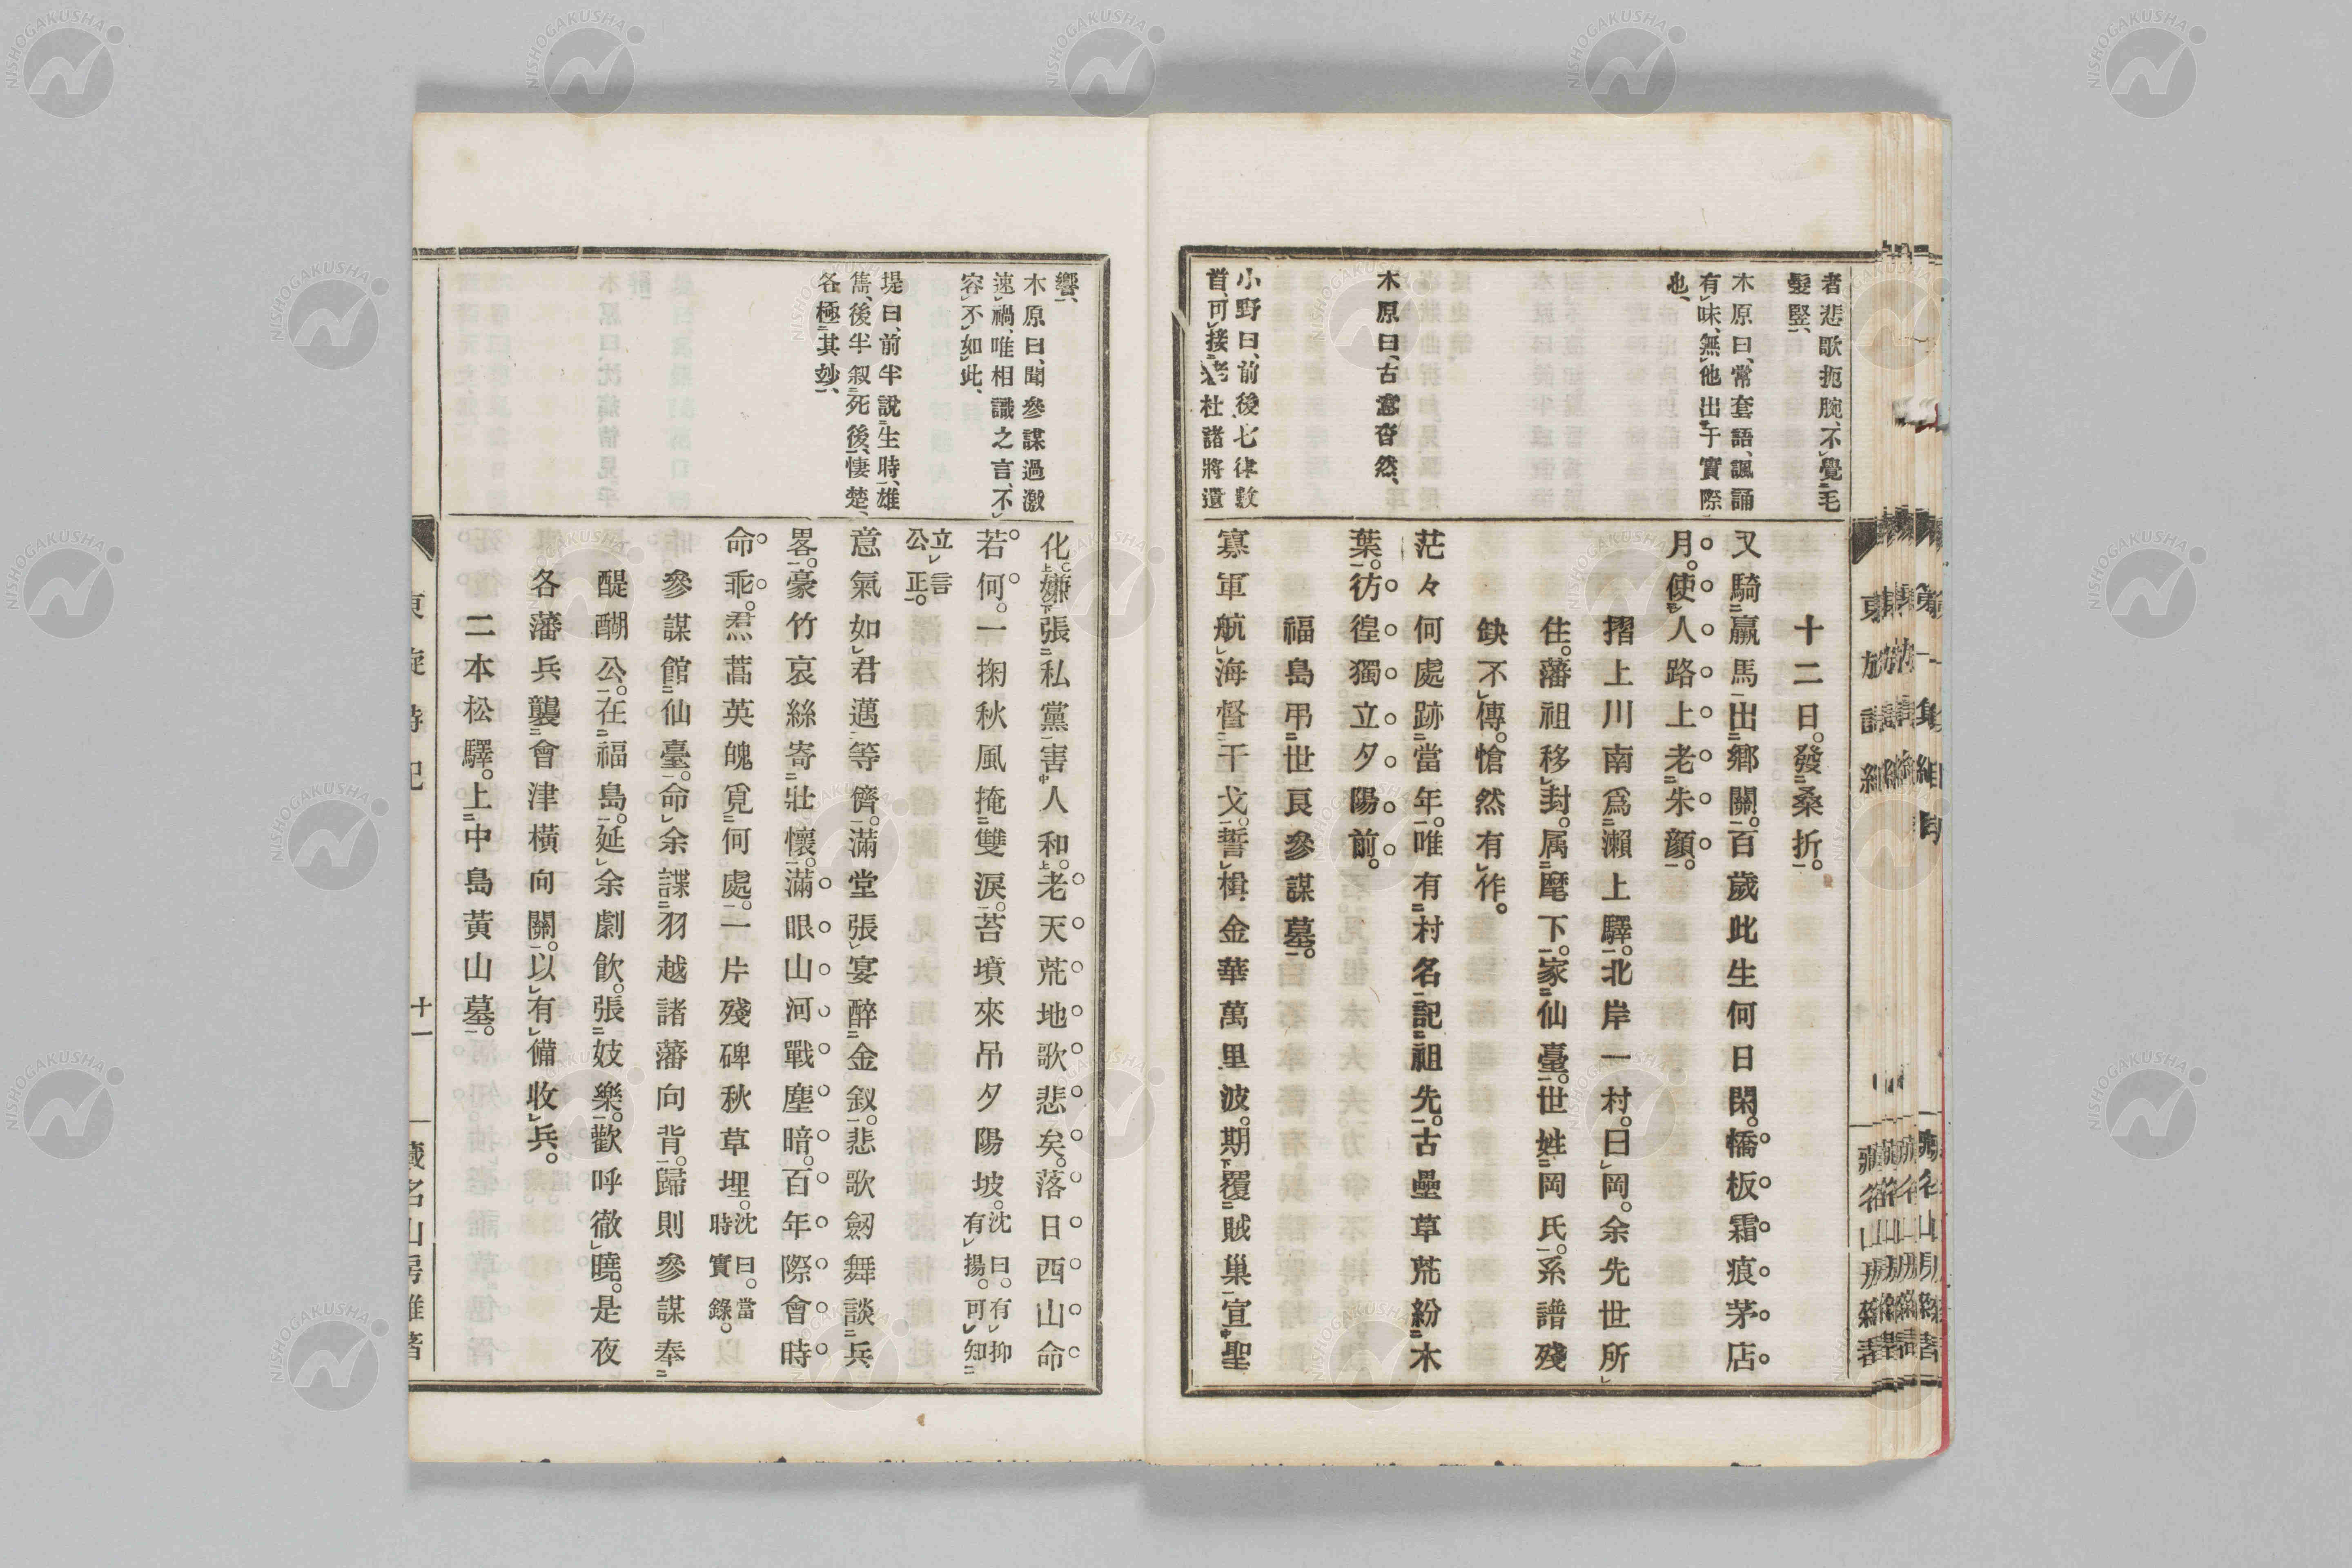 者悲歌扼腕、不覺毛
髮竪、
木原曰、常套語、諷誦
有味、無他出于實際
也、
木原曰、古意杳然、
小野曰、前後七律數
首、可接老杜諸將遺
十二日。發桑折。
又騎羸馬出鄉關。百歲此生何日閑。橋板霜痕茅店
月。使人路上老朱顏。
摺上川南爲瀨上驛。北岸一村。曰岡。余先世所
住。藩祖移封。属麾下。家仙臺。世姓岡氏。系譜殘
缺不傳。愴然有作。
茫々何處跡當年。唯有村名記祖先。古壘草荒紛木
葉。彷徨獨立夕陽前。
福島吊世良參謀墓。
寡軍航海督干戈。誓楫金華萬里波。期覆賊巢宣聖
響、
木原曰、聞參謀過激
速禍、唯相識之言、不
容不如此、
堤曰、前半說生時、雄
雋、後半叙死後、悽楚、
各極其妙、
化。嫌張私黨害人和。老天荒地歌悲矣。落日西山命
若何。一掬秋風掩雙淚。苔墳來吊夕陽坡。沈曰。有抑
有揚。可知
立言
公正。
意氣如君邁等儕。滿堂張宴醉金釵。悲歌劒舞談兵
畧。豪竹哀絲寄壯懷。滿眼山河戰塵暗。百年際會時
命乖。焄蒿英魄覓何處。一片殘碑秋草埋。沈曰。當
時實錄。
參謀館仙臺。命余諜羽越諸藩向背。歸則參謀奉
醍醐公。在福島。延余劇飮。張妓樂。歡呼徹曉。是夜
各藩兵襲會津橫向關。以有備收兵。
二本松驛。上中島黃山墓。
十一